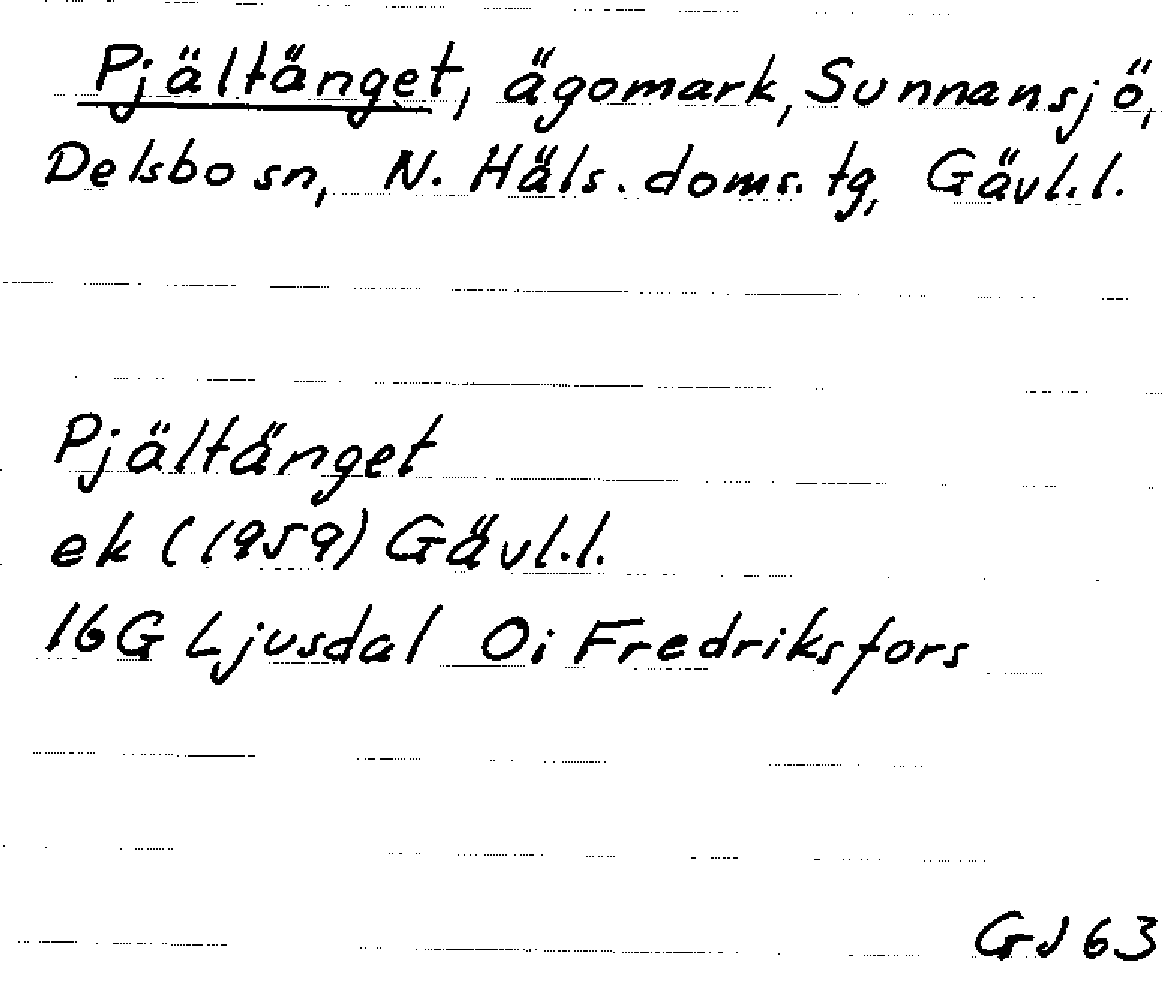 Pjältänget, ägomark, Sunnansjö,
Delsbo sn, N. Häls. doms. tg, Gävl. l.
Pjältänget
ek (1959) Gävl. l.
16G Ljusdal 0i Fredriksfors
GJ 63